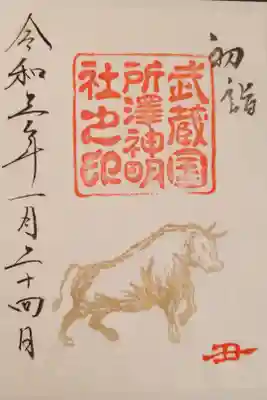 初詣
武蔵国
所澤神明
社之印
令和三年一月二十四日
丑